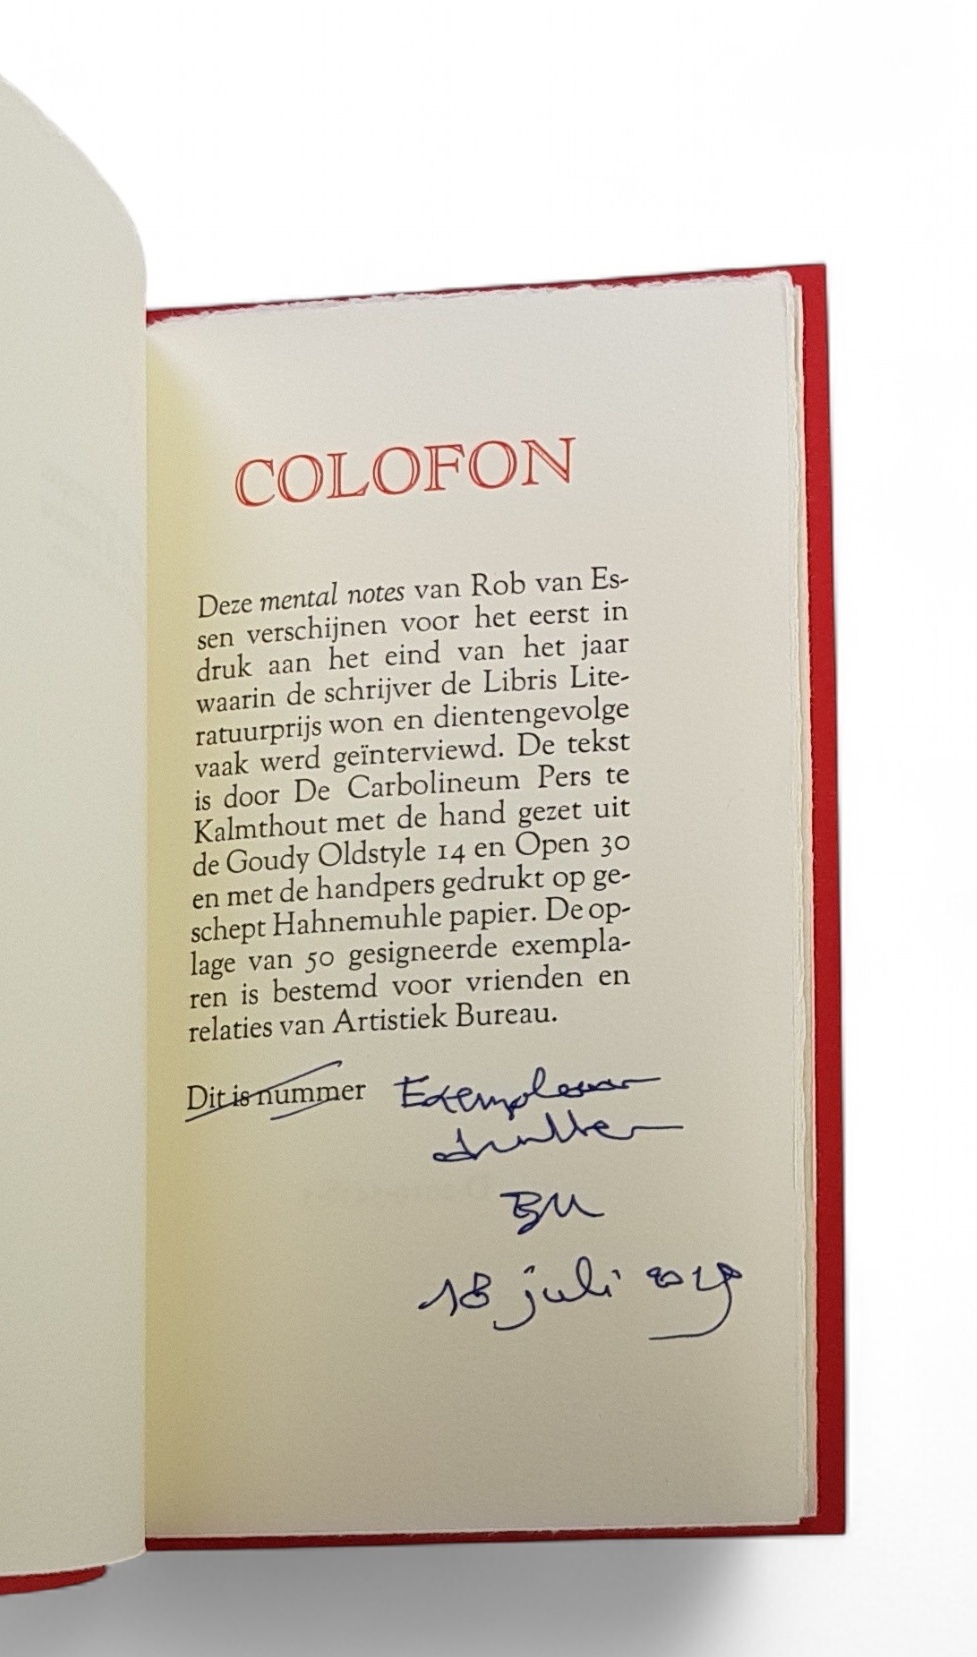 COLOFON
Deze mental notes van Rob van Es-
sen verschijnen voor het eerst in
druk aan het eind van het jaar
waarin de schrijver de Libris Lite-
ratuurprijs won en dientengevolge
vaak werd geïnterviewd. De tekst
is door De Carbolineum Pers te
Kalmthout met de hand gezet uit
de Goudy Oldstyle 14 en Open 30
en met de handpers gedrukt op ge-
schept Hahnemuhle papier. De op-
lage van 50 gesigneerde exempla-
ren is bestemd voor vrienden en
relaties van Artistiek Bureau.
Dit is nummer Exemplaar
drukker
18 juli